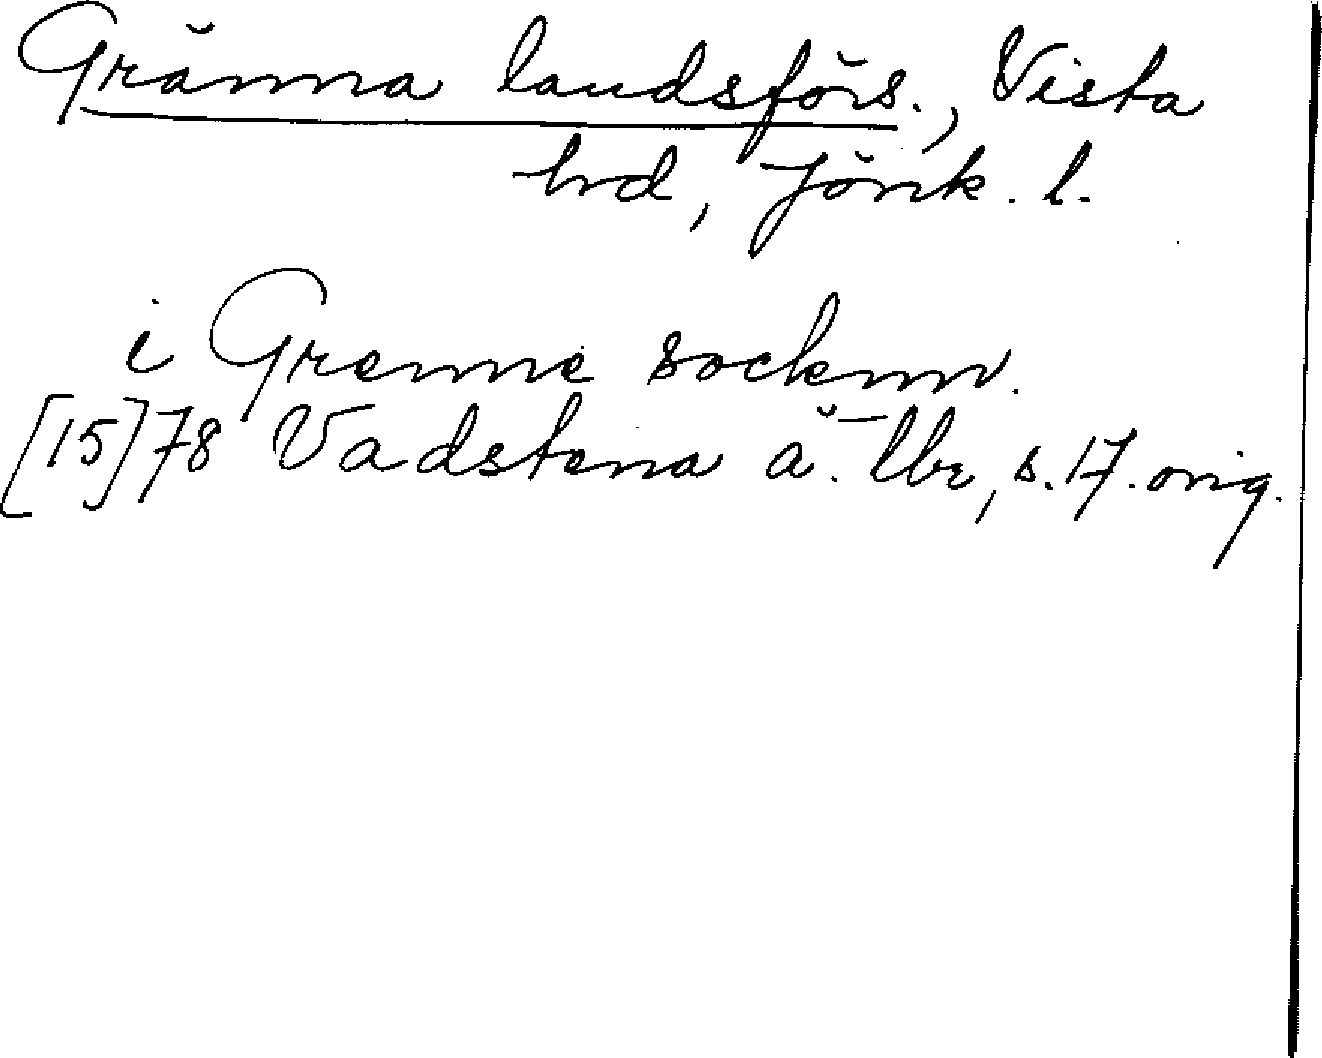 Gränna landsförs., Vista
hrd, Jönk. l.
i Grenne socknn.
[15]78 Vadstena ä. Jbr, s. 17. orig.